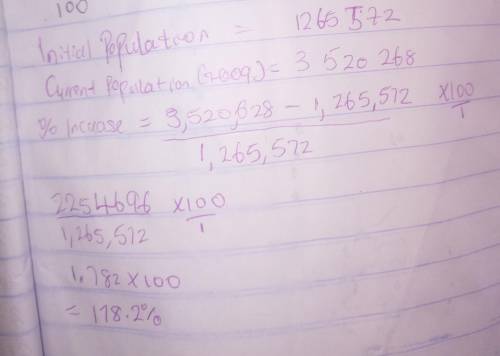 100
Initial Population = 1265 572
Current Population (2009) = 3 520 268
% Increase = 3,520,628 - 1,265,572 x100
1,265,572 1
2254696 x100
1,265,572 1
1.782 x 100
= 178.2%